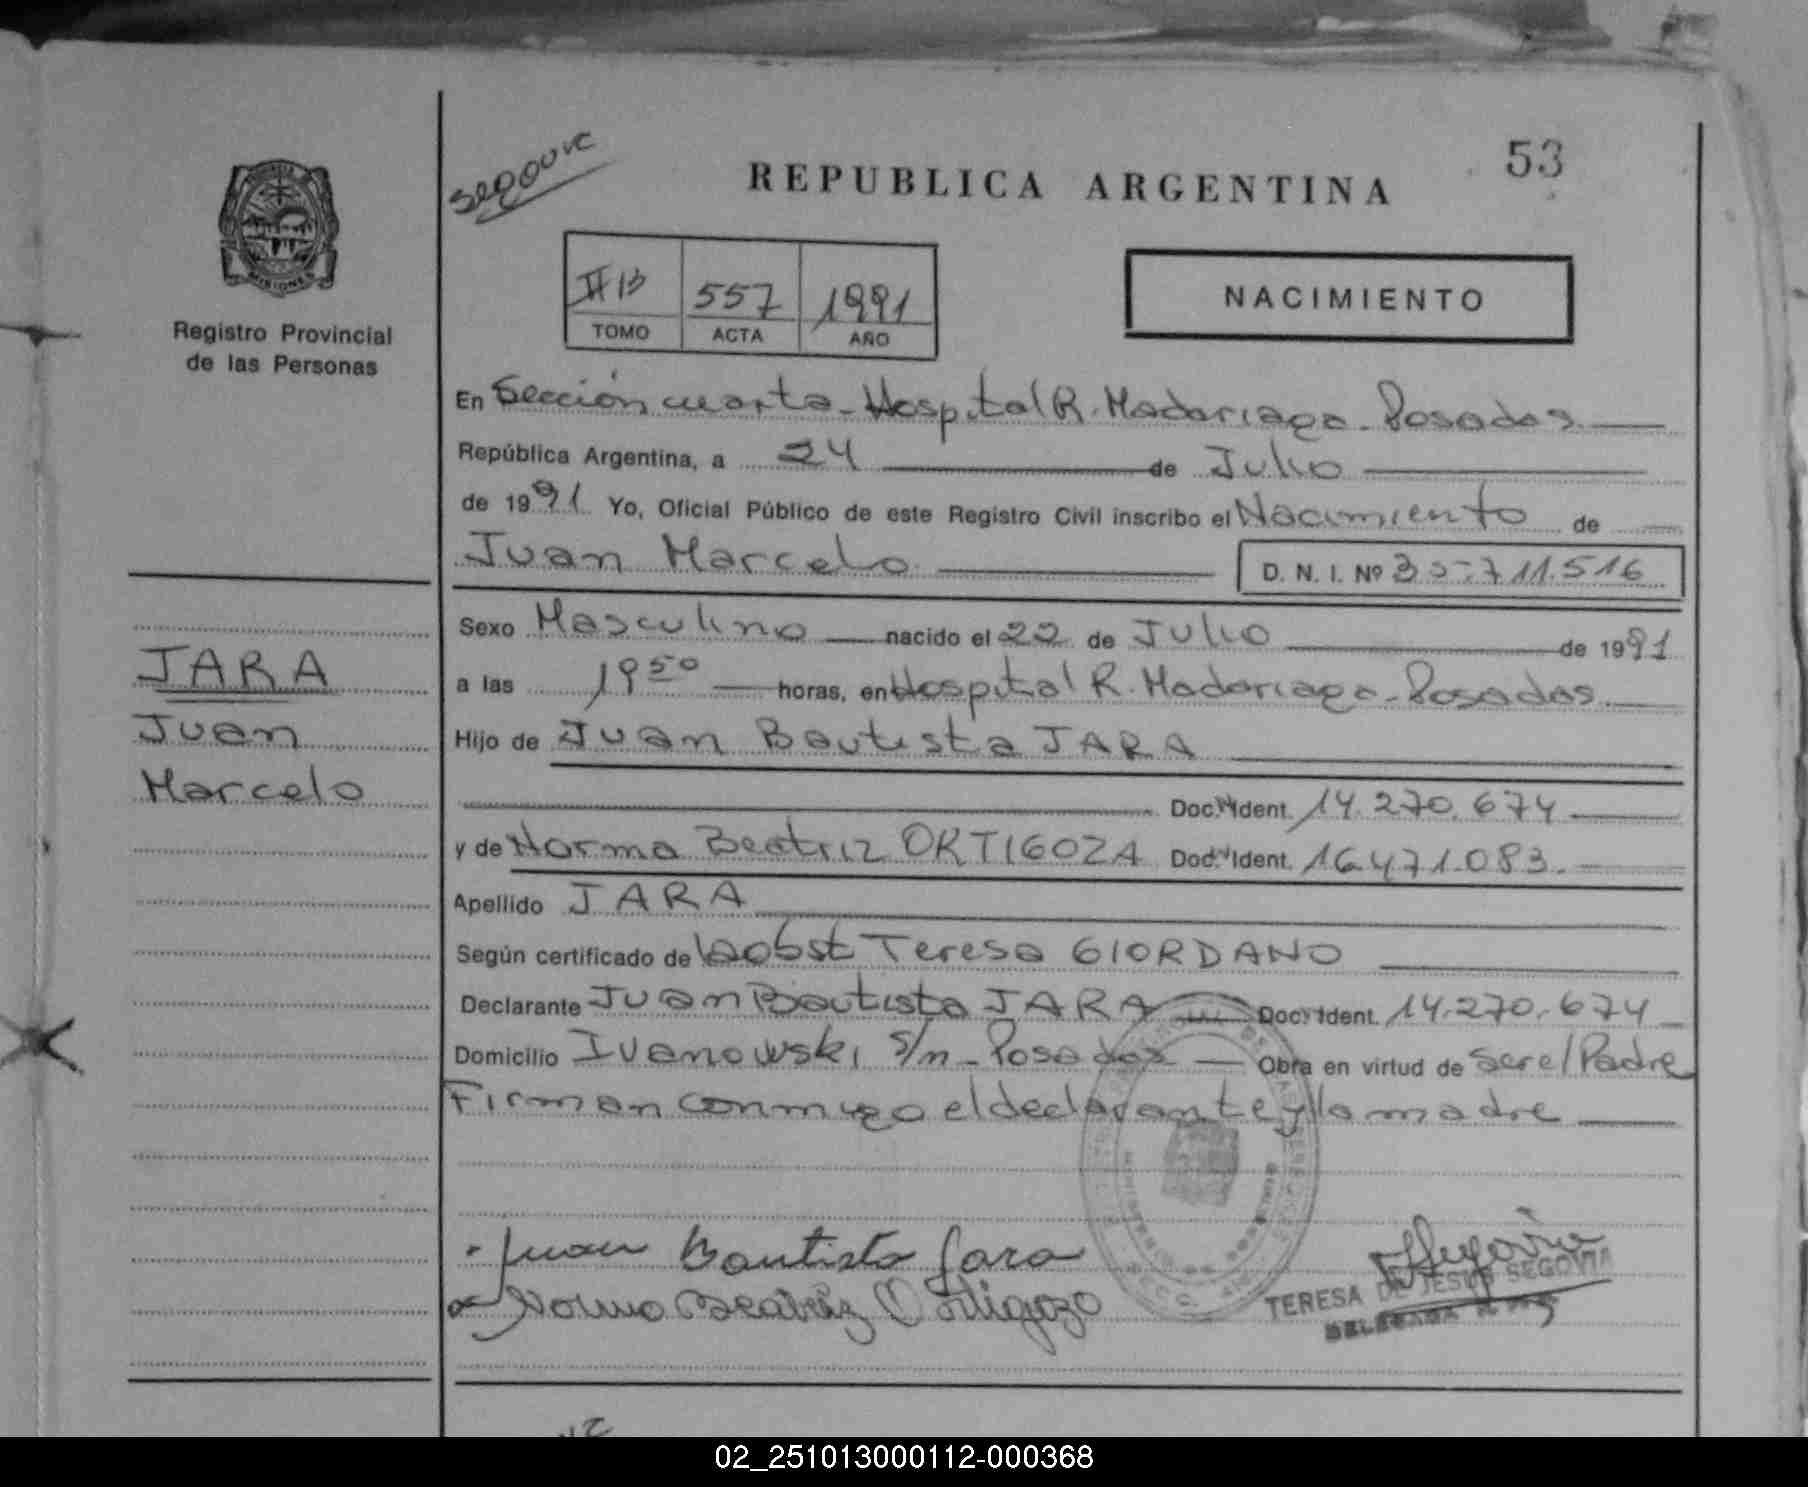 53
segovic
REPUBLICA ARGENTINA
MISIONES
Registro Provincial
de las Personas
II B 557 1991
TOMO ACTA AÑO
NACIMIENTO
En Sección cuarta - Hospital R. Madariaga - Posadas
República Argentina, a 24 de Julio
de 1991 Yo, Oficial Público de este Registro Civil inscribo el Nacimiento de
Juan Marcelo D. N. I. Nº 35.711.516
JARA
Juan
Marcelo
Sexo Masculino nacido el 22 de Julio de 1991
a las 19 50 horas, en Hospital R. Madariaga - Posadas
Hijo de Juan Bautista JARA
Doc. Ident. 14.270.674
y de Norma Beatriz ORTIGOZA Doc. Ident. 16.471.083.
Apellido JARA
Según certificado de Obst Teresa GIORDANO
Declarante Juan Bautista JARA Doc. Ident. 14.270.674
Domicilio Ivanowski s/n - Posadas Obra en virtud de ser el Padre
Firman conmigo el declarante y la madre
Juan Bautista Jara
Norma Beatriz Ortigozo
TERESA DE JESUS SEGOVIA
02_251013000112-000368